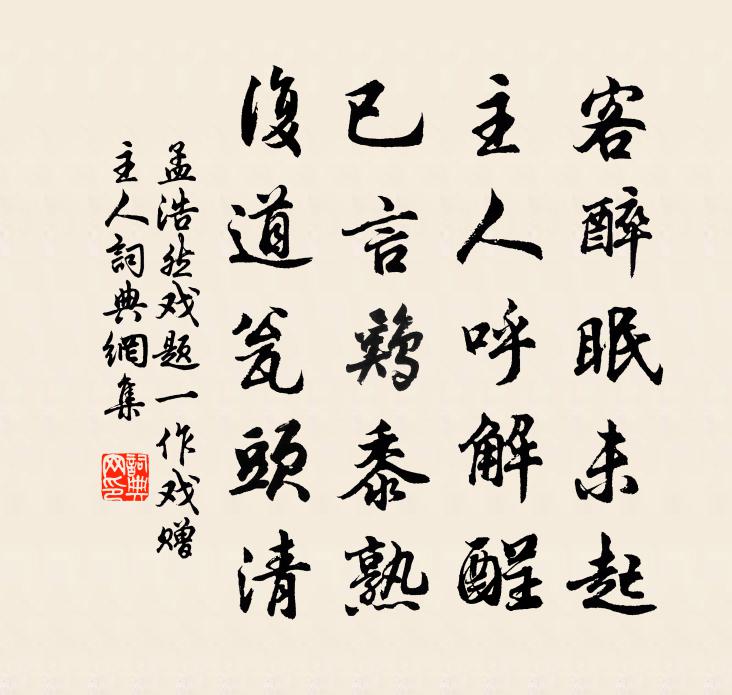 客醉眠未起
主人呼解酲
已言鷄黍熟
復道瓮頭清
孟浩然戏题一作戏赠
主人詞典網集
詞典网印